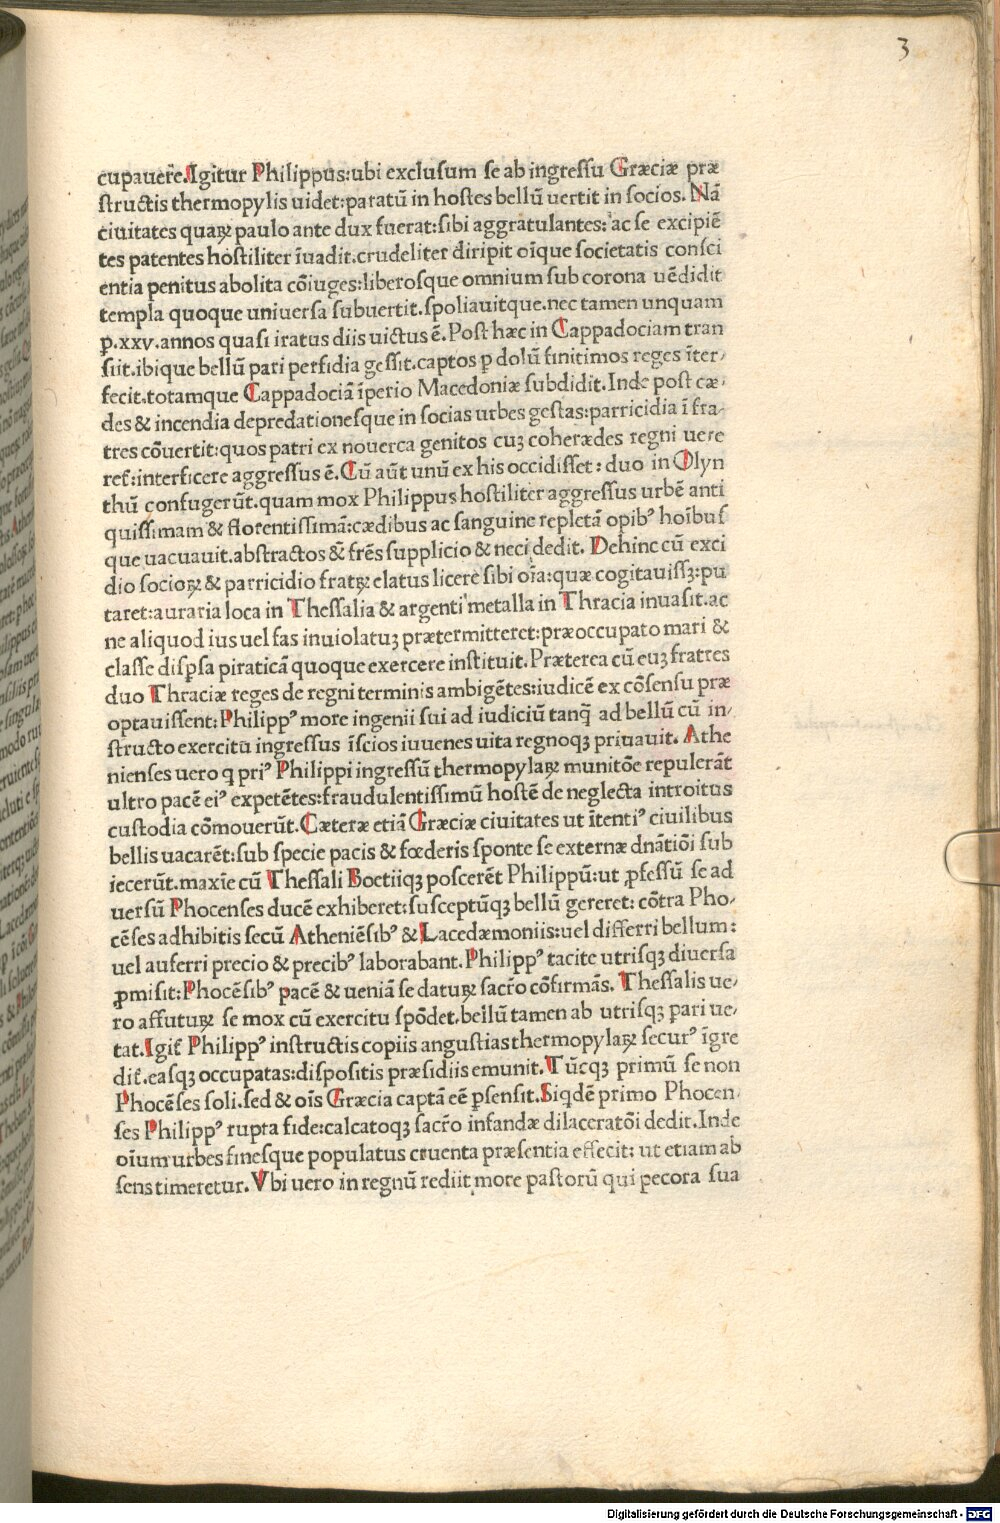 3
cupauer̃e.Igitur Philippus:ubi exclusum se ab ingressu Græciæ præ
structis thermopylis uidet:paratũ in hostes bellũ uertit in socios. Nã
ciuitates quaꝝ paulo ante dux fuerat:sibi aggratulantes: ac se excipiẽ
tes patentes hostiliter ĩuadit.crudeliter diripit oĩque societatis consci
entia penitus abolita cõiuges:liberosque omnium sub corona uẽdidit
templa quoque uniuersa subuertit.spoliauitque.nec tamen unquam
ꝑ.xxv.annos quasi iratus diis uictus ẽ.Post hæc in Cappadociam tran
siit.ibique bellũ pari perfidia gessit.captos ꝑ dolũ finitimos reges ĩter-
fecit.totamque Cappadociã ĩperio Macedoniæ subdidit.Inde post cæ-
des & incendia depredationesque in socias urbes gestas:parricidia ĩ fra-
tres cõuertit:quos patri ex nouerca genitos cuꝫ coherædes regni uere
ret̃:interficere aggressus ẽ.Cũ aũt unũ ex his occidisset: duo in Olyn
thũ confugerũt.quam mox Philippus hostiliter aggressus urbẽ anti
quissimam & florentissimã:cædibus ac sanguine repletã opibꝰ hoĩbus
que uacuauit.abstractos & fr̃es supplicio & neci dedit. Dehinc cũ exci
dio socioꝝ & parricidio fratꝝ elatus licere sibi oĩa:quæ cogitauissꝫ:pu
taret:auraria loca in Thessalia & argenti metalla in Thracia inuasit.ac
ne aliquod ius uel fas inuiolatuꝫ prætermitteret:præoccupato mari &
classe dispsa piraticã quoque exercere instituit. Præterea cũ euꝫ fratres
duo Thraciæ reges de regni terminis ambigẽtes:iudicẽ ex cõsensu præ
optauissent:Philippꝰ more ingenii sui ad iudiciũ tanq̃ ad bellũ cũ in-
structo exercitu ingressus ĩscios iuuenes uita regnoqꝫ priuauit. Athe
nienses uero q priꝰ Philippi ingressũ thermopylaꝝ munitõe repulerãt
ultro pacẽ eiꝰ expetẽtes:fraudulentissimũ hostẽ de neglecta introitus
custodia cõmouerũt.Cæteræ etiã Græciæ ciuitates ut ĩtentiꝰ ciuilibus
bellis uacarẽt:sub specie pacis & fœderis sponte se externæ dñatiõi sub
iecerũt.maxĩe cũ Thessali Boetiiqꝫ poscerẽt Philippũ:ut ꝓfessũ se ad
uersũ Phocenses ducẽ exhiberet:susceptũqꝫ bellũ gereret: cõtra Pho-
cẽses adhibitis secũ Atheniẽsibꝰ & Lacedæmoniis:uel differri bellum:
uel auferri precio & precibꝰ laborabant.Philippꝰ tacite utrisqꝫ diuersa
ꝓmisit:Phocẽsibꝰ pacẽ & ueniã se datuꝝ sacr̃o cõfirmãs. Thessalis ue-
ro affutuꝝ se mox cũ exercitu spõdet.bellũ tamen ab utrisqꝫ pari ue-
tat.Igit̃ Philippꝰ instructis copiis angustias thermopylaꝝ securꝰ ĩgre
dit̃.easqꝫ occupatas:dispositis præsidiis emunit.Tũcqꝫ primũ se non
Phocẽses soli.sed & oĩs Græcia captã eẽ ꝑsensit.Siqdẽ primo Phocen-
ses Philippꝰ rupta fide:calcatoqꝫ sacr̃o infandæ dilaceratõi dedit.Inde
oĩum urbes finesque populatus cruenta præsentia effecit: ut etiam ab
sens timeretur.Vbi uero in regnũ rediit more pastorũ qui pecora sua
Digitalisierung gefördert durch die Deutsche Forschungsgemeinschaft - DFG